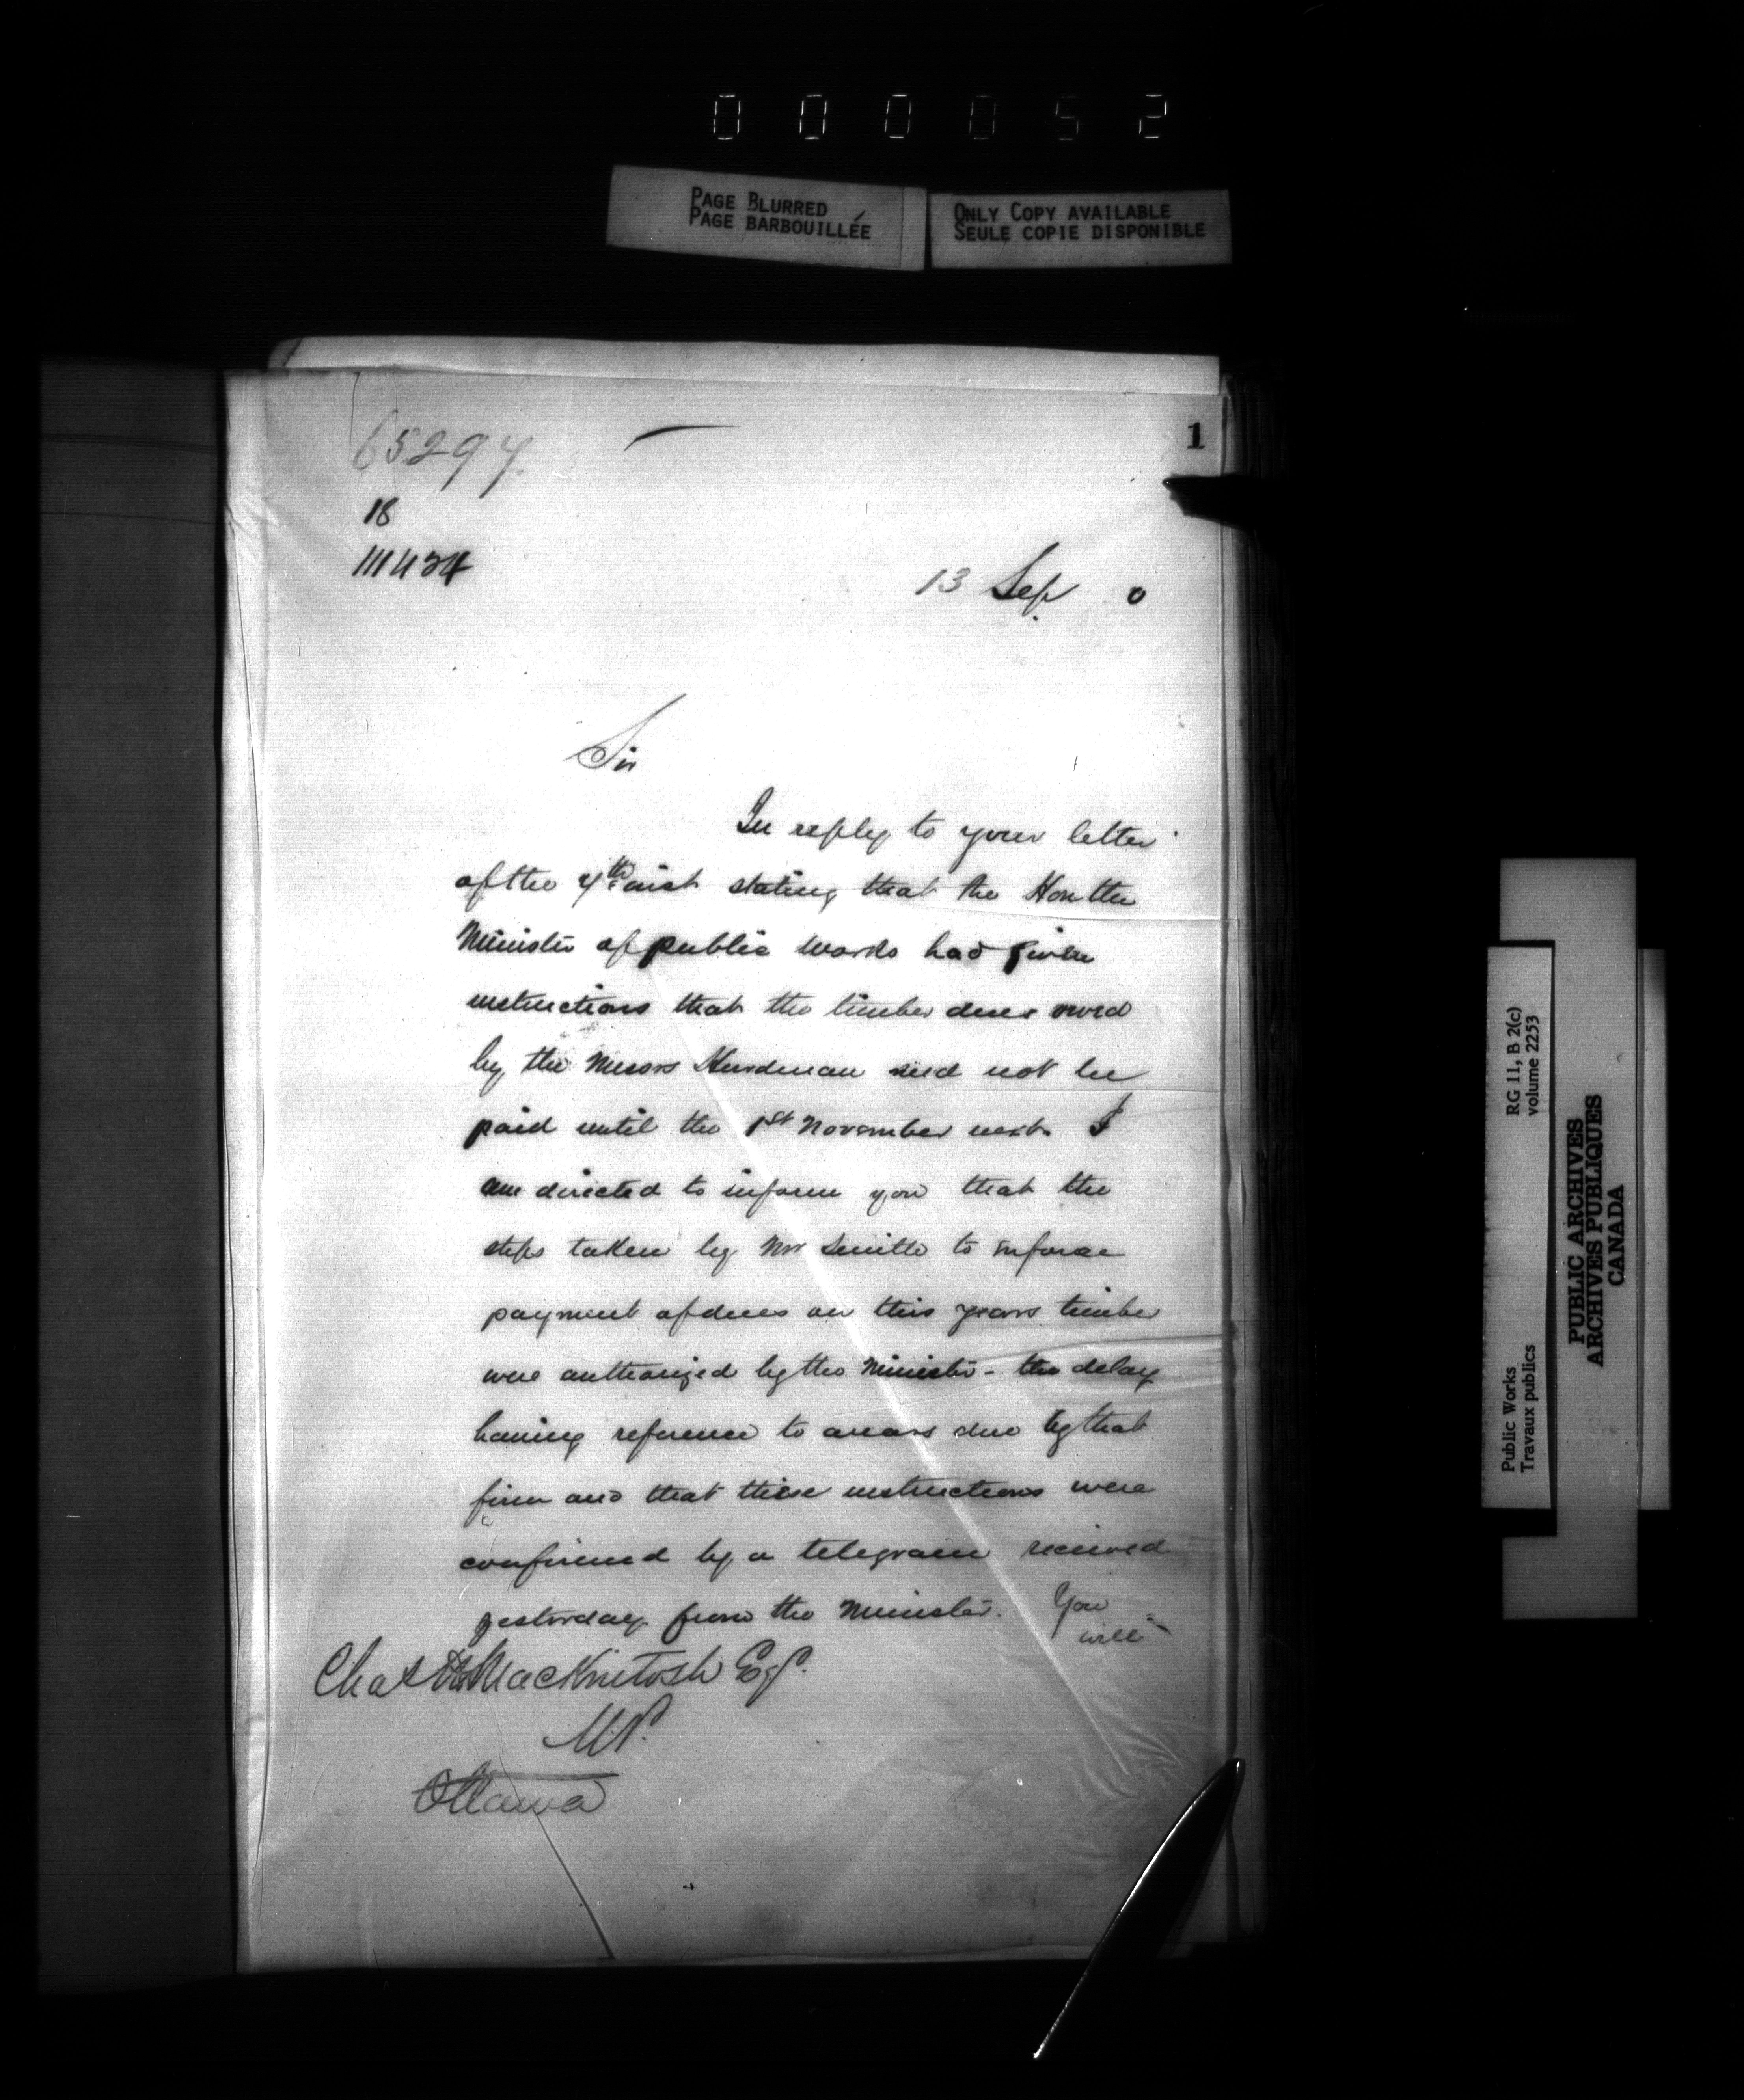 000052
PAGE BLURRED
PAGE BARBOUILLÉE
ONLY COPY AVAILABLE
SEULE COPIE DISPONIBLE
65297
1
18
111424
13 Sep. 0
Sir
In reply to your letter
of the 7th inst stating that the Hon the
Minister of public works had given
instructions that the timber dues owed
by the Messrs Hurdman need not be
paid until the 1st November next. I
am directed to inform you that the
steps taken by Mr Smith to inforce
payment of dues on this years timber
were authorized by the Minister - the delay
having reference to arears due by that
firm and that these instructions were
confirmed by a telegram received
yesterday from the Minister. You
will
Chas Mackintosh Esq.
M.P.
Ottawa
RG 11, B 2(c)
volume 2253
Public Works
Travaux publics
PUBLIC ARCHIVES
ARCHIVES PUBLIQUES
CANADA